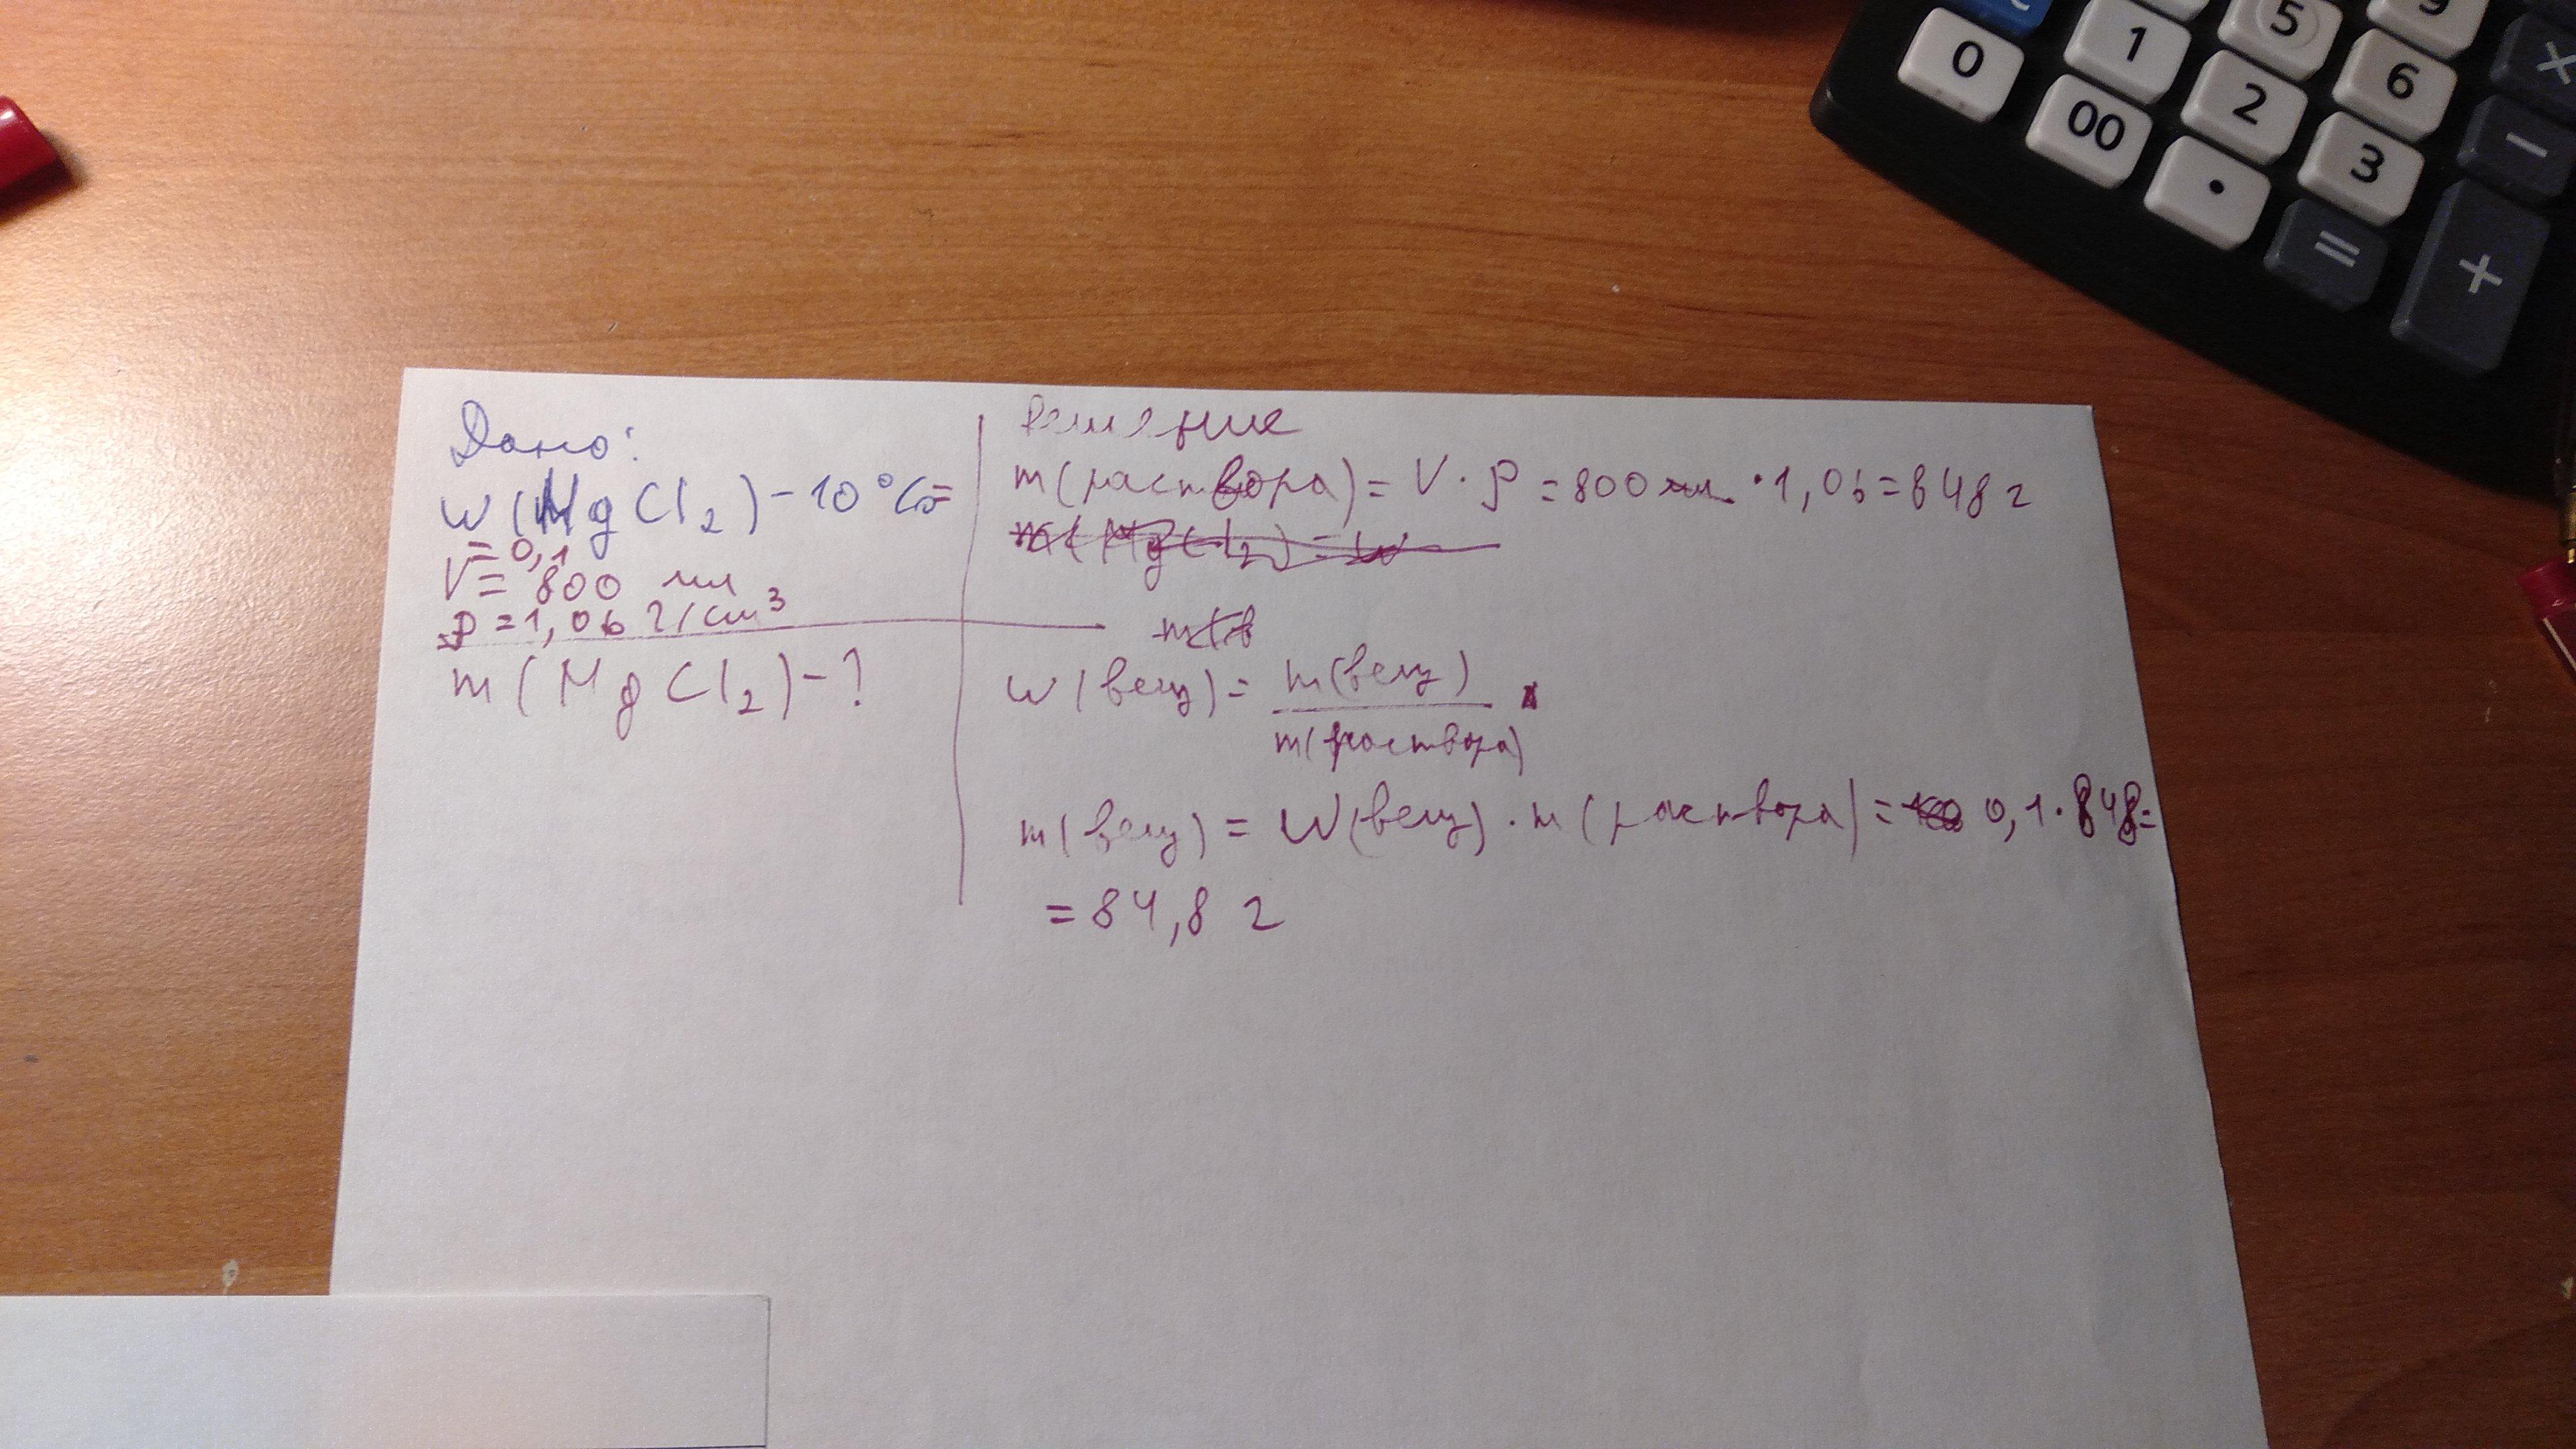 Дано:
w(MgCl2) - 10% =
= 0,1
V = 800 мл
ρ = 1,06 г/см³
m(MgCl2) - ?
Решение
m(раствора) = V · ρ = 800 мл · 1,06 = 848 г
m(MgCl2) = w
m(в
w(вещ) = m(вещ)
m(раствора)
m(вещ) = W(вещ) · m(раствора) = 0,1 · 848 =
= 84,8 г
0
00
1
2
3
5
6
9
.
=
+
-
×